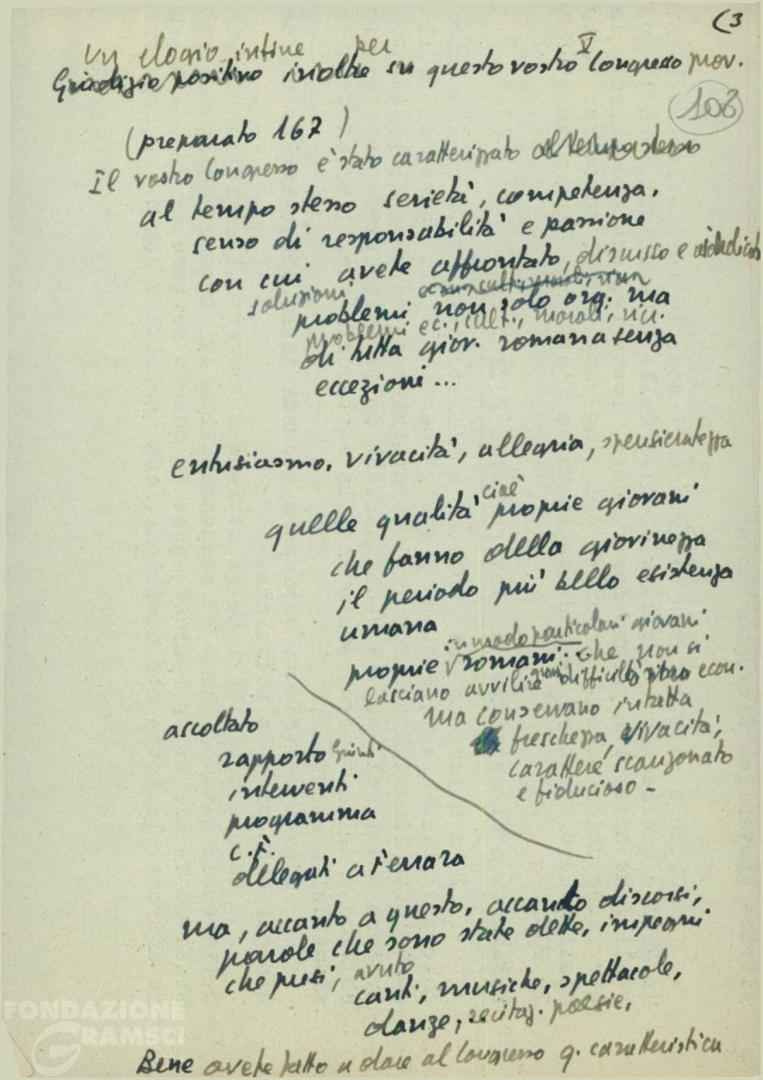 (3
Un elogio infine per
Giudizio positivo inoltre su questo vostro V Congresso prov.
108
(preparato 167)
Il vostro Congresso è stato caratterizzato al tempo stesso
al tempo stesso serietà, competenza,
senso di responsabilità e passione
con cui avete affrontato, discusso e
soluzioni
problemi non solo org. ma
problemi ec., cult., morali, ric.
di tutta giov. romana senza
eccezioni...
entusiasmo, vivacità, allegria, spensieratezza
quelle qualità cioè proprie giovani
che fanno della giovinezza
il periodo più bello esistenza
umana
in modo particolare giovani
proprie romani. che non si
lasciano avvilire difficoltà econ.
ma conservano intatta
freschezza, vivacità,
carattere scanzonato
e fiducioso -
ascoltato
rapporto
interventi
programma
C.F.
delegati a Ferrara
ma, accanto a questo, accanto discorsi,
parole che sono state dette, impegni
che presi, avuto
canti, musiche, spettacole,
danze, recitaz. poesie,
Bene avete fatto a dare al Congresso q. caratteristica
FONDAZIONE
GRAMSCI